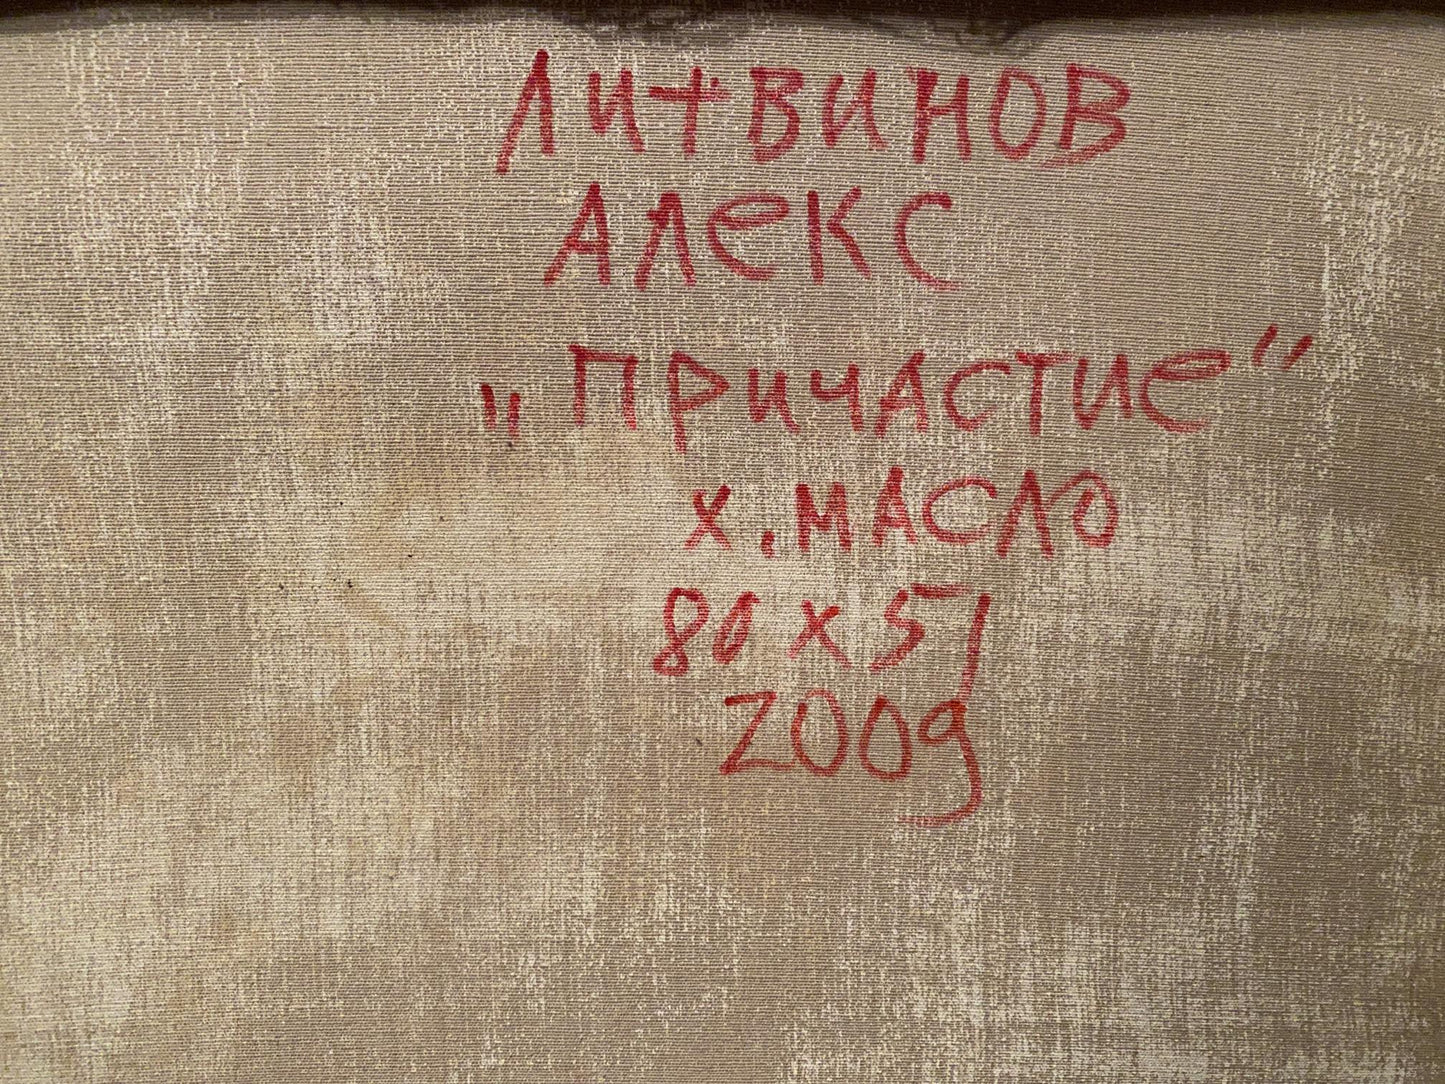 Литвинов
Алекс
„Причастие"
х. масло
80 х 51
2009